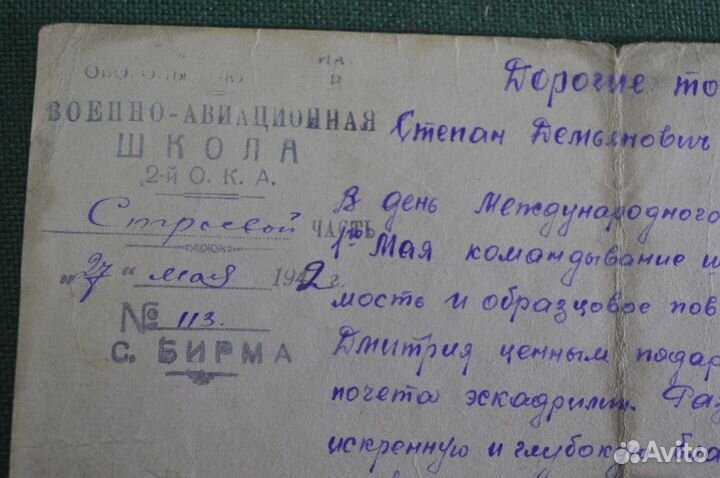 ВОЕННО-АВИАЦИОННАЯ
ШКОЛА
2-й О. К. А.
Строевой ЧАСТЬ
„27“ мая 1942 г.
№ 113.
С. БИРМА
Дорогие то
Степан Демьянович
В день Международного
1го Мая командывание
мость и образцовое пов
Дмитрия ценным подар
почета эскадрили. Газ
искренную и глубокую бла
Avito